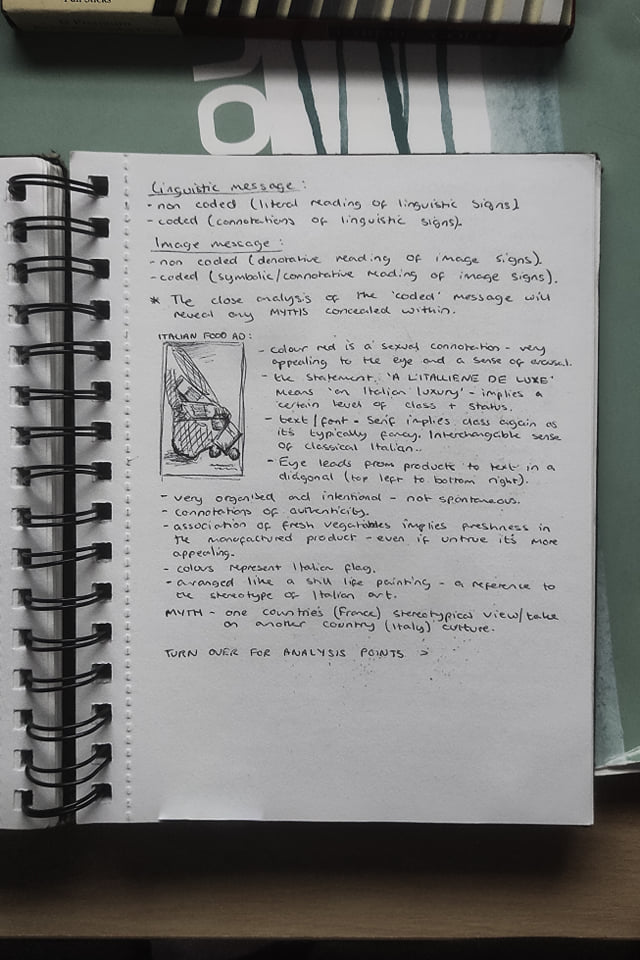 Linguistic message:
- non coded (literal reading of linguistic signs)
- coded (connotations of linguistic signs).
Image message:
- non coded (denotative reading of image signs).
- coded (symbolic/connotative reading of image signs).
* The close analysis of the 'coded' message will
reveal any MYTHS concealed within.
ITALIAN FOOD AD:
- colour red is a sexual connotation - very
appealing to the eye and a sense of arousal.
- the statement 'A L'ITALLIENE DE LUXE'
means 'an Italian luxury' - implies a
certain level of class + status.
- text/font - Serif implies class again as
it's typically fancy. Interchangible sense
of classical Italian..
- Eye leads from products to text in a
diagonal (top left to bottom right).
- very organised and intentional - not spontaneous.
- connotations of authenticity.
- association of fresh vegetables implies freshness in
the manufactured product - even if untrue it's more
appealing.
- colours represent Italian flag.
- arranged like a still life painting - a reference to
the stereotype of Italian art.
MYTH - one countries (France) stereotypical view/take
on another country (Italy) culture.
TURN OVER FOR ANALYSIS POINTS >